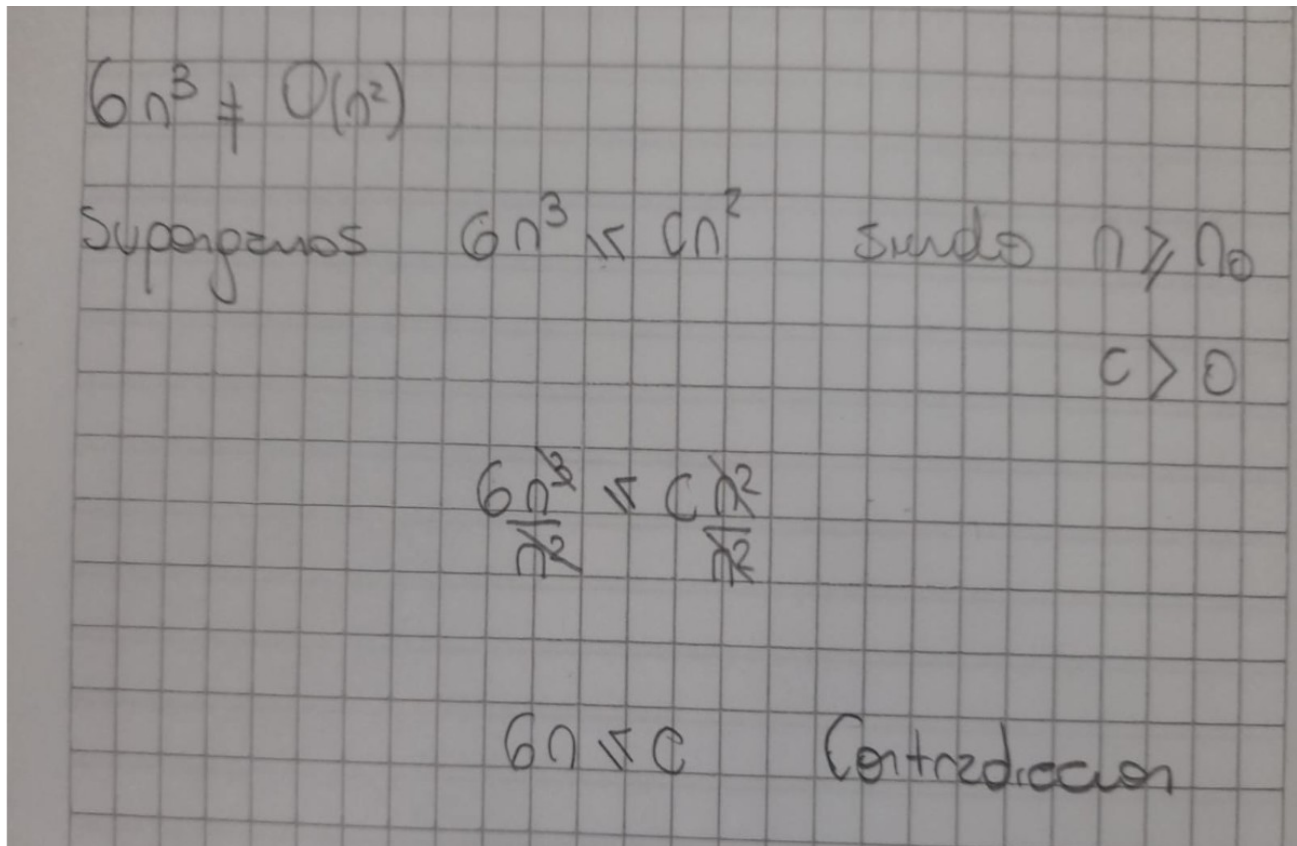 6n³ ≠ O(n²)
Supongamos 6n³ ≤ Cn² siendo n ≥ n₀
c > 0
6n³/n² ≤ C n²/n²
6n ≤ C Contradiccion